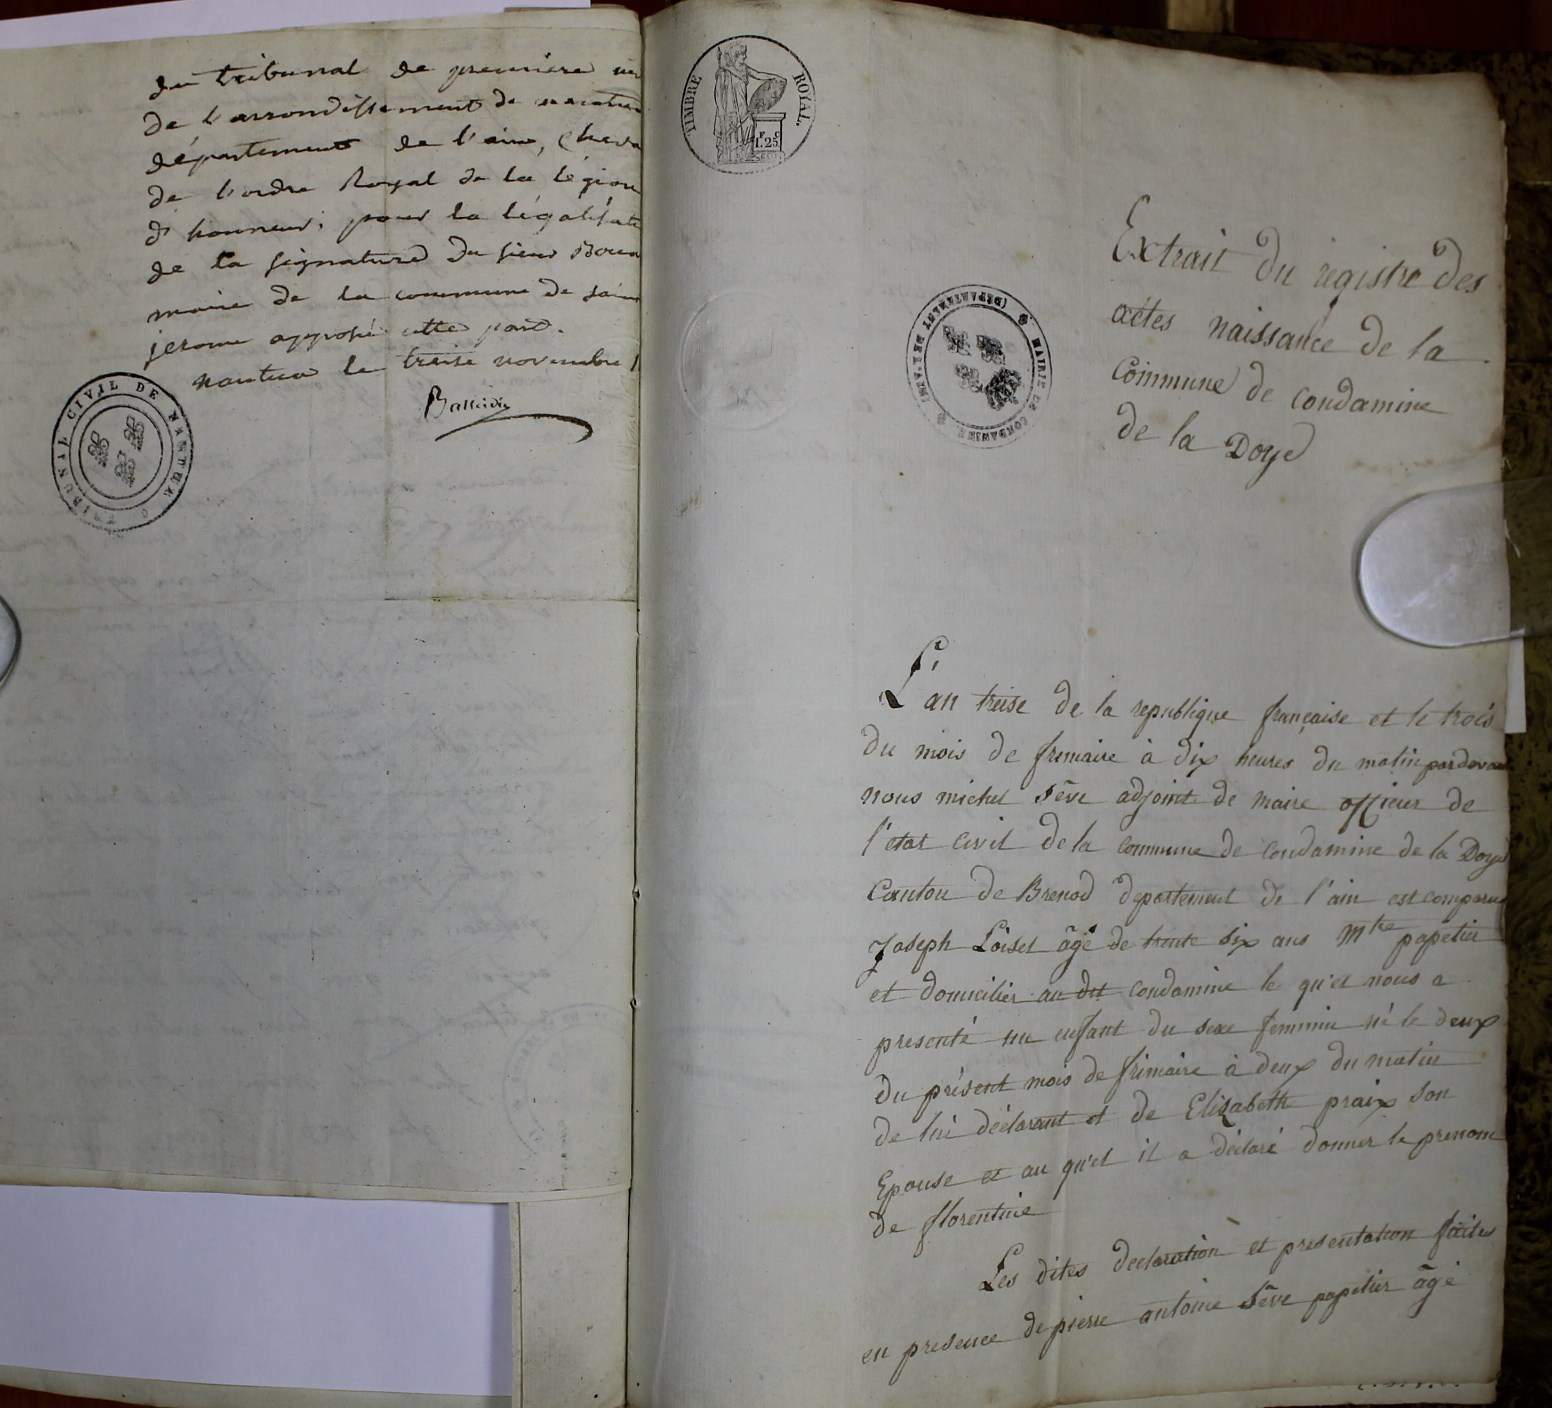 du tribunal de première
de l'arrondissement de nantua
département de l'ain, Cheva
de l'ordre Royal de la légion
d'honneur; pour la légalisati
de la signature du sieur
maire de la commune de sain
jerome apposée cette part.
nantua le treise novembre
TRIBUNAL CIVIL DE NANTUA
TIMBRE ROYAL
1.F 25.C
MAIRIE DE CONDAMINE (DÉPARTEMENT DE L'AIN)
Extrait du registre des
actes naissance de la
Commune de condamine
de la Doye
L'an treise de la republique française et le trois
du mois de frimaire à dix heures du matin pardevant
nous michel Sêve adjoint de maire officier de
l'etat civil de la commune de condamine de la Doye
Canton de Brenod departement de l'ain est comparu
Joseph Loiset âgé de trente six ans Mtre papetier
et domicilier au dit condamine le qu'el nous a
presenté un enfant du sexe feminin né le deux
du présent mois de frimaire à deux du matin
de lui déclarant et de Elizabeth praix son
Epouse et au qu'el il a déclaré donner le prenom
de florentine
Les dites declaration et presentation faites
en presence de pierre antoine Sêve papetier âgé